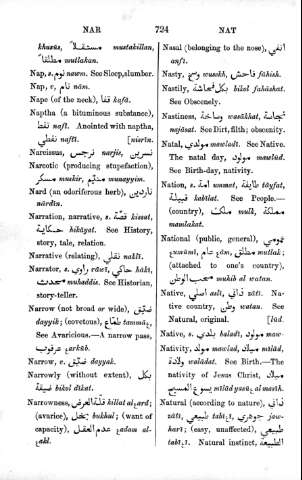 NAR 724 NAT
khusūs, مستقلاً mustakillan,
مطلقا mutlakan.
Nap, s. نوم nawm. See Sleep, slumber.
Nap, v, نام nām.
Nape (of the neck), قفا kafā.
Naptha (a bituminous substance),
نفط naft. Anointed with naptha,
نفطي naftī. [nisrīn.
Narcissus, نرجس narjis, نسرين
Narcotic (producing stupefaction),
مسكر mukir, منوّم munayyim.
Nard (an odoriferous herb), ناردين
nārdīn.
Narration, narrative, s. قصّة kissat,
حكاية hikāyat. See History,
story, tale, relation.
Narrative (relating), نقلي naklī.
Narrator, s. راوي rāwī, حاكي hākī,
محدث muhaddis. See Historian,
story-teller.
Narrow (not broad or wide), ضيّق
dayyik; (covetous), طمّاع
See Avaricious.—A narrow pass,
Narrow, v. ضيّق dayyak.
Narrowly (without extent), بكل
ضيقة bikol dīkat.
Narrowness, قلة العرض killat al
(avarice), بخل bukhul; (want of
capacity), عدم العقل
Nasal (belonging to the nose), انفي
anfī.
Nasty, وسخ wasekh, فاحش fāhish.
Nastily, بكل فحاشة bikol fahāshat.
See Obscenely.
Nastiness, وساخة wasākha, نجاسة
najāsat. See Dirt, filth; obscenity.
Natal, مولدي mawladī. See Native.
The natal day, مولود mawlūd.
See Birth-day, nativity.
Nation, s. امة ummat, طايفة tāyfat,
قبيلة kabīlat. See People.—
(country), ملك mulk,
مملكة mamlakat.
National (public, general), عمومي
عام مطلق mutlak;
(attached to one's country),
محب الوطن muhib al watan.
Native, اصلي aslī, ذاتي zātī. Native
country, وطن watan. See
Natural, original. [lūd.
Native, s. بلدي baladī, مولود maw-
Nativity, مولود mawlūd, ميلاد mīlād,
ولادة walādat. See Birth.—The
nativity of Jesus Christ, ميلاد
يسوع المسيح mīlād yasū al masīh.
Natural (according to nature), ذاتي
zātī, طبيعي جوهري jaw-
harī; (easy, unaffected), طبيعي
Natural instinct, الطبيعي